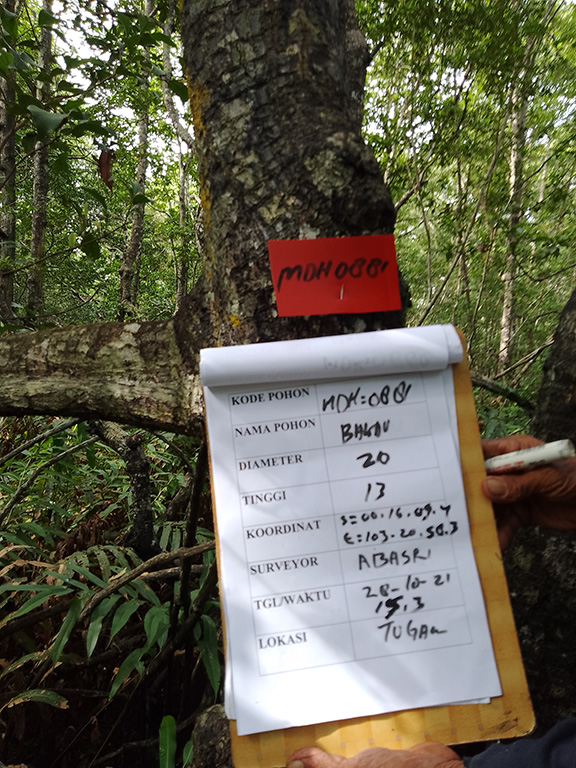 MDH0881
KODE POHON MDH=0881
NAMA POHON BAKAU
DIAMETER 20
TINGGI 13
KOORDINAT S=00.16.09.4
E=103-20.58.3
SURVEYOR ABASRI
TGL/WAKTU 28-10-21
15.3
LOKASI